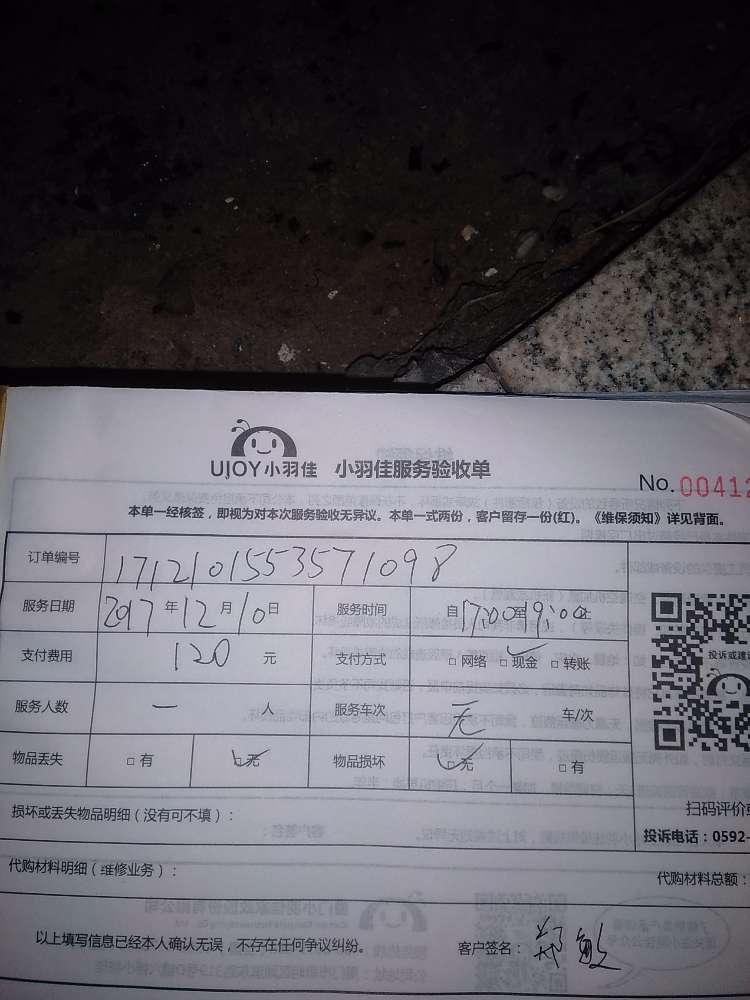 UJOY小羽佳 小羽佳服务验收单
No.00412
本单一经核签，即视为对本次服务验收无异议。本单一式两份，客户留存一份(红)。《维保须知》详见背面。
订单编号 1712101553571098
服务日期 2017年12月10日 服务时间 自17:00至19:00止
支付费用 120 元 支付方式 □网络 □现金 □转账
投诉或建议
服务人数 一 人 服务车次 无 车/次
物品丢失 □有 □无 物品损坏 □无 □有
扫码评价或
损坏或丢失物品明细（没有可不填）：
投诉电话：0592-
代购材料明细（维修业务）： 代购材料总额：
以上填写信息已经本人确认无误，不存在任何争议纠纷。 客户签名：郑敏